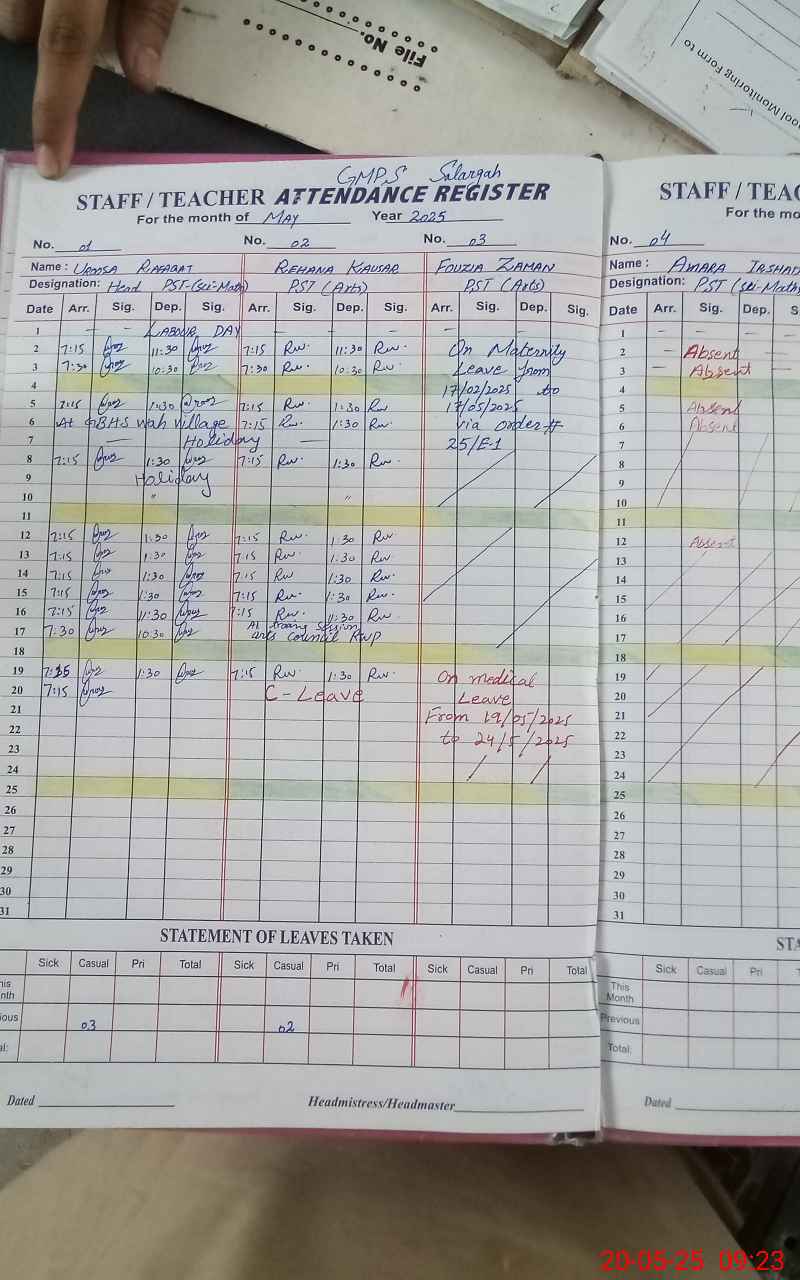 File No.
ool Monitoring Form to
GMPS Salargah
STAFF / TEACHER ATTENDANCE REGISTER
For the month of MAY Year 2025
No. 01 No. 02 No. 03
Name : UROOSA RIFAQAT REHANA KAUSAR FOUZIA ZAMAN
Designation: Head PST-(Sci-Math) PST (Arts) PST (Arts)
Date Arr. Sig. Dep. Sig. Arr. Sig. Dep. Sig. Arr. Sig. Dep. Sig.
1 – – LABOUR DAY – – – –
2 7:15 11:30 7:15 Rw. 11:30 Rw. On Maternity
3 7:30 10:30 7:30 Rw. 10:30 Rw. Leave from
4 17/02/2025 to
5 7:15 1:30 7:15 Rw. 1:30 Rw 17/05/2025
6 At GBHS wah village 7:15 Rw. 1:30 Rw. via order #
7 — Holiday — 25/E-1
8 7:15 1:30 7:15 Rw. 1:30 Rw.
9 Holiday
10 " "
11
12 7:15 1:30 7:15 Rw. 1:30 Rw.
13 7:15 1:30 7:15 Rw. 1:30 Rw.
14 7:15 1:30 7:15 Rw 1:30 Rw.
15 7:15 1:30 7:15 Rw. 1:30 Rw.
16 7:15 11:30 7:15 Rw. 11:30 Rw.
17 7:30 10:30 At session
arts council RWP
18
19 1:30 7:15 Rw. 1:30 Rw. On medical
20 7:15 C-Leave Leave
21 From 19/05/2025
22 to 24/5/2025
23
24
25
26
27
28
29
30
31
STATEMENT OF LEAVES TAKEN
Sick Casual Pri Total Sick Casual Pri Total Sick Casual Pri Total
his
nth
ious 03 02
al:
Dated Headmistress/Headmaster
STAFF / TEAC
For the mo
No. 04
Name: AMARA
Designation: PST (Sci-Math
Date Arr. Sig. Dep. S
1 – – –
2 – Absent –
3 – Absent –
4
5 Absent
6 Absent
7
8
9
10
11
12 Absent
13
14
15
16
17
18
19
20
21
22
23
24
25
26
27
28
29
30
31
STA
Sick Casual Pri T
This
Month
Previous
Total:
Dated
20-05-25 09:23